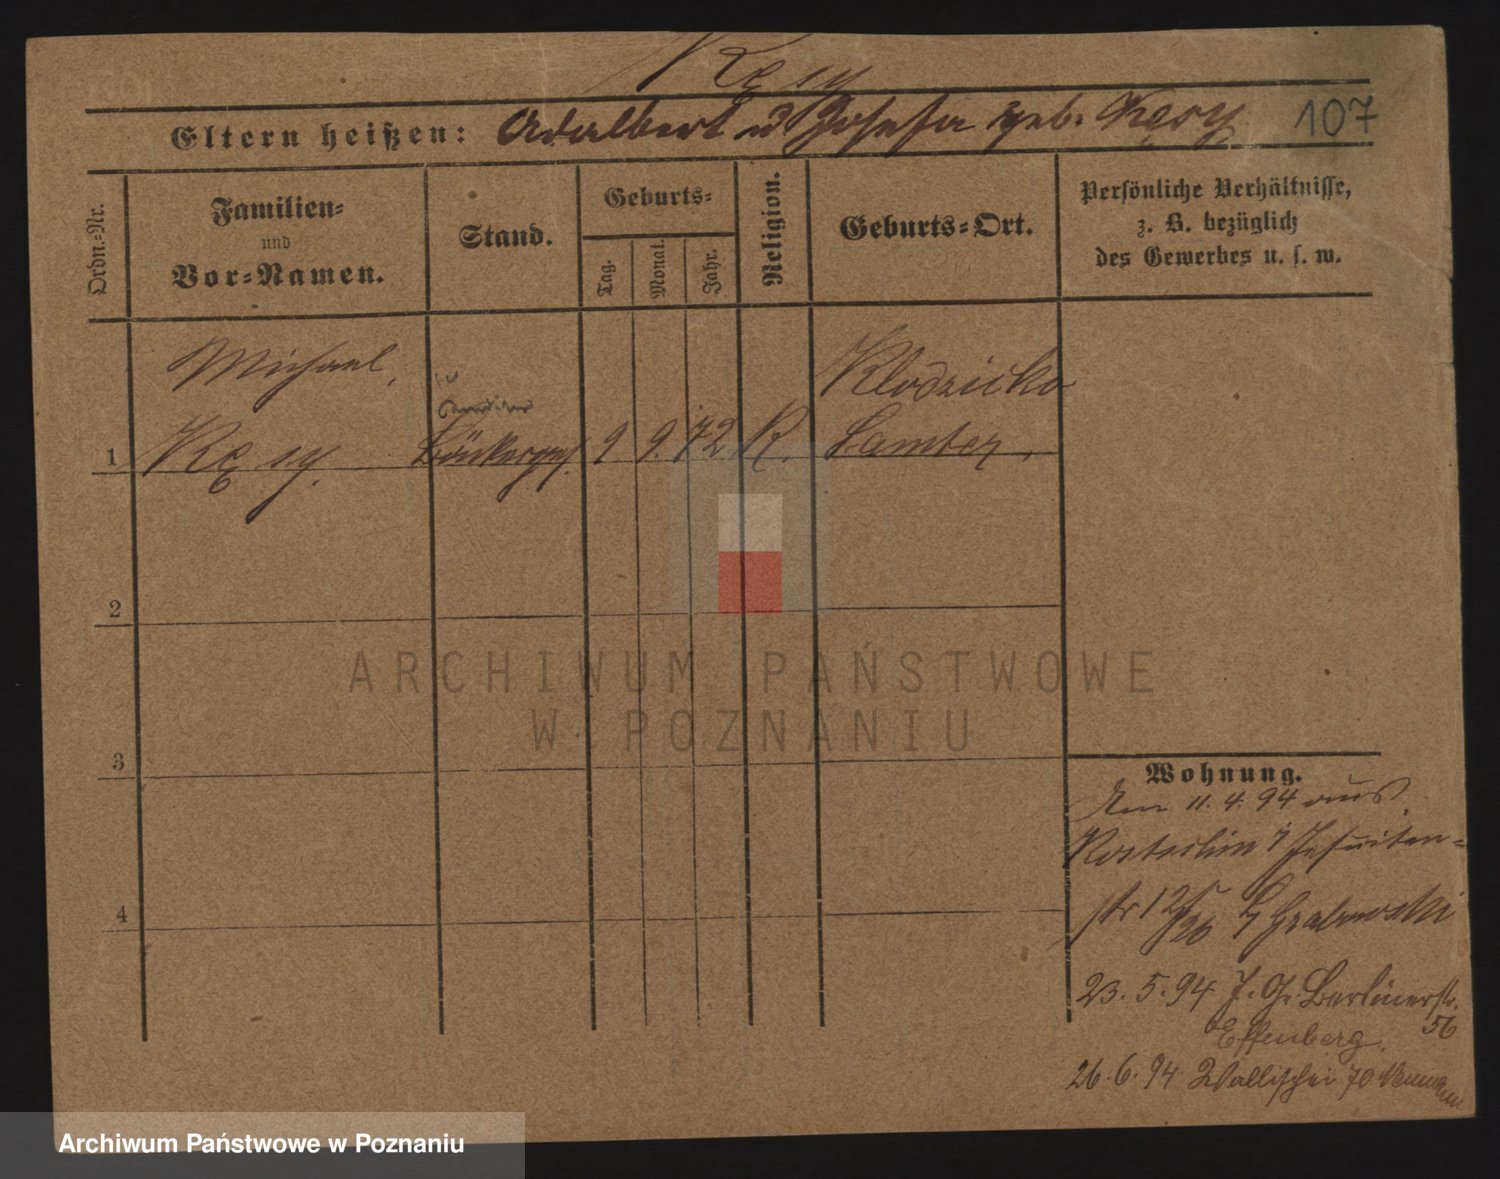 Kęsy
Eltern heißen: Adalbert u Josefa geb. Kęsy 107
Ordn.-Nr.
Familien-
und
Vor-Namen.
Stand.
Geburts-
Tag.
Monat.
Jahr.
Religion.
Geburts-Ort.
Persönliche Verhältnisse,
z. B. bezüglich
des Gewerbes u. s. w.
Michael,
Klodzisko
1 Kęsy. Bäckerges. 9 9. 72 K. Samter,
2
3
4
Wohnung.
Am 11.4.94 aus
Rostschin i Jesuiten-
str 12
23.5.94 J. Gr. Berlinerstr.
56
Effenberg.
26.6.94 Wallischei 70
ARCHIWUM PAŃSTWOWE
W POZNANIU
Archiwum Państwowe w Poznaniu